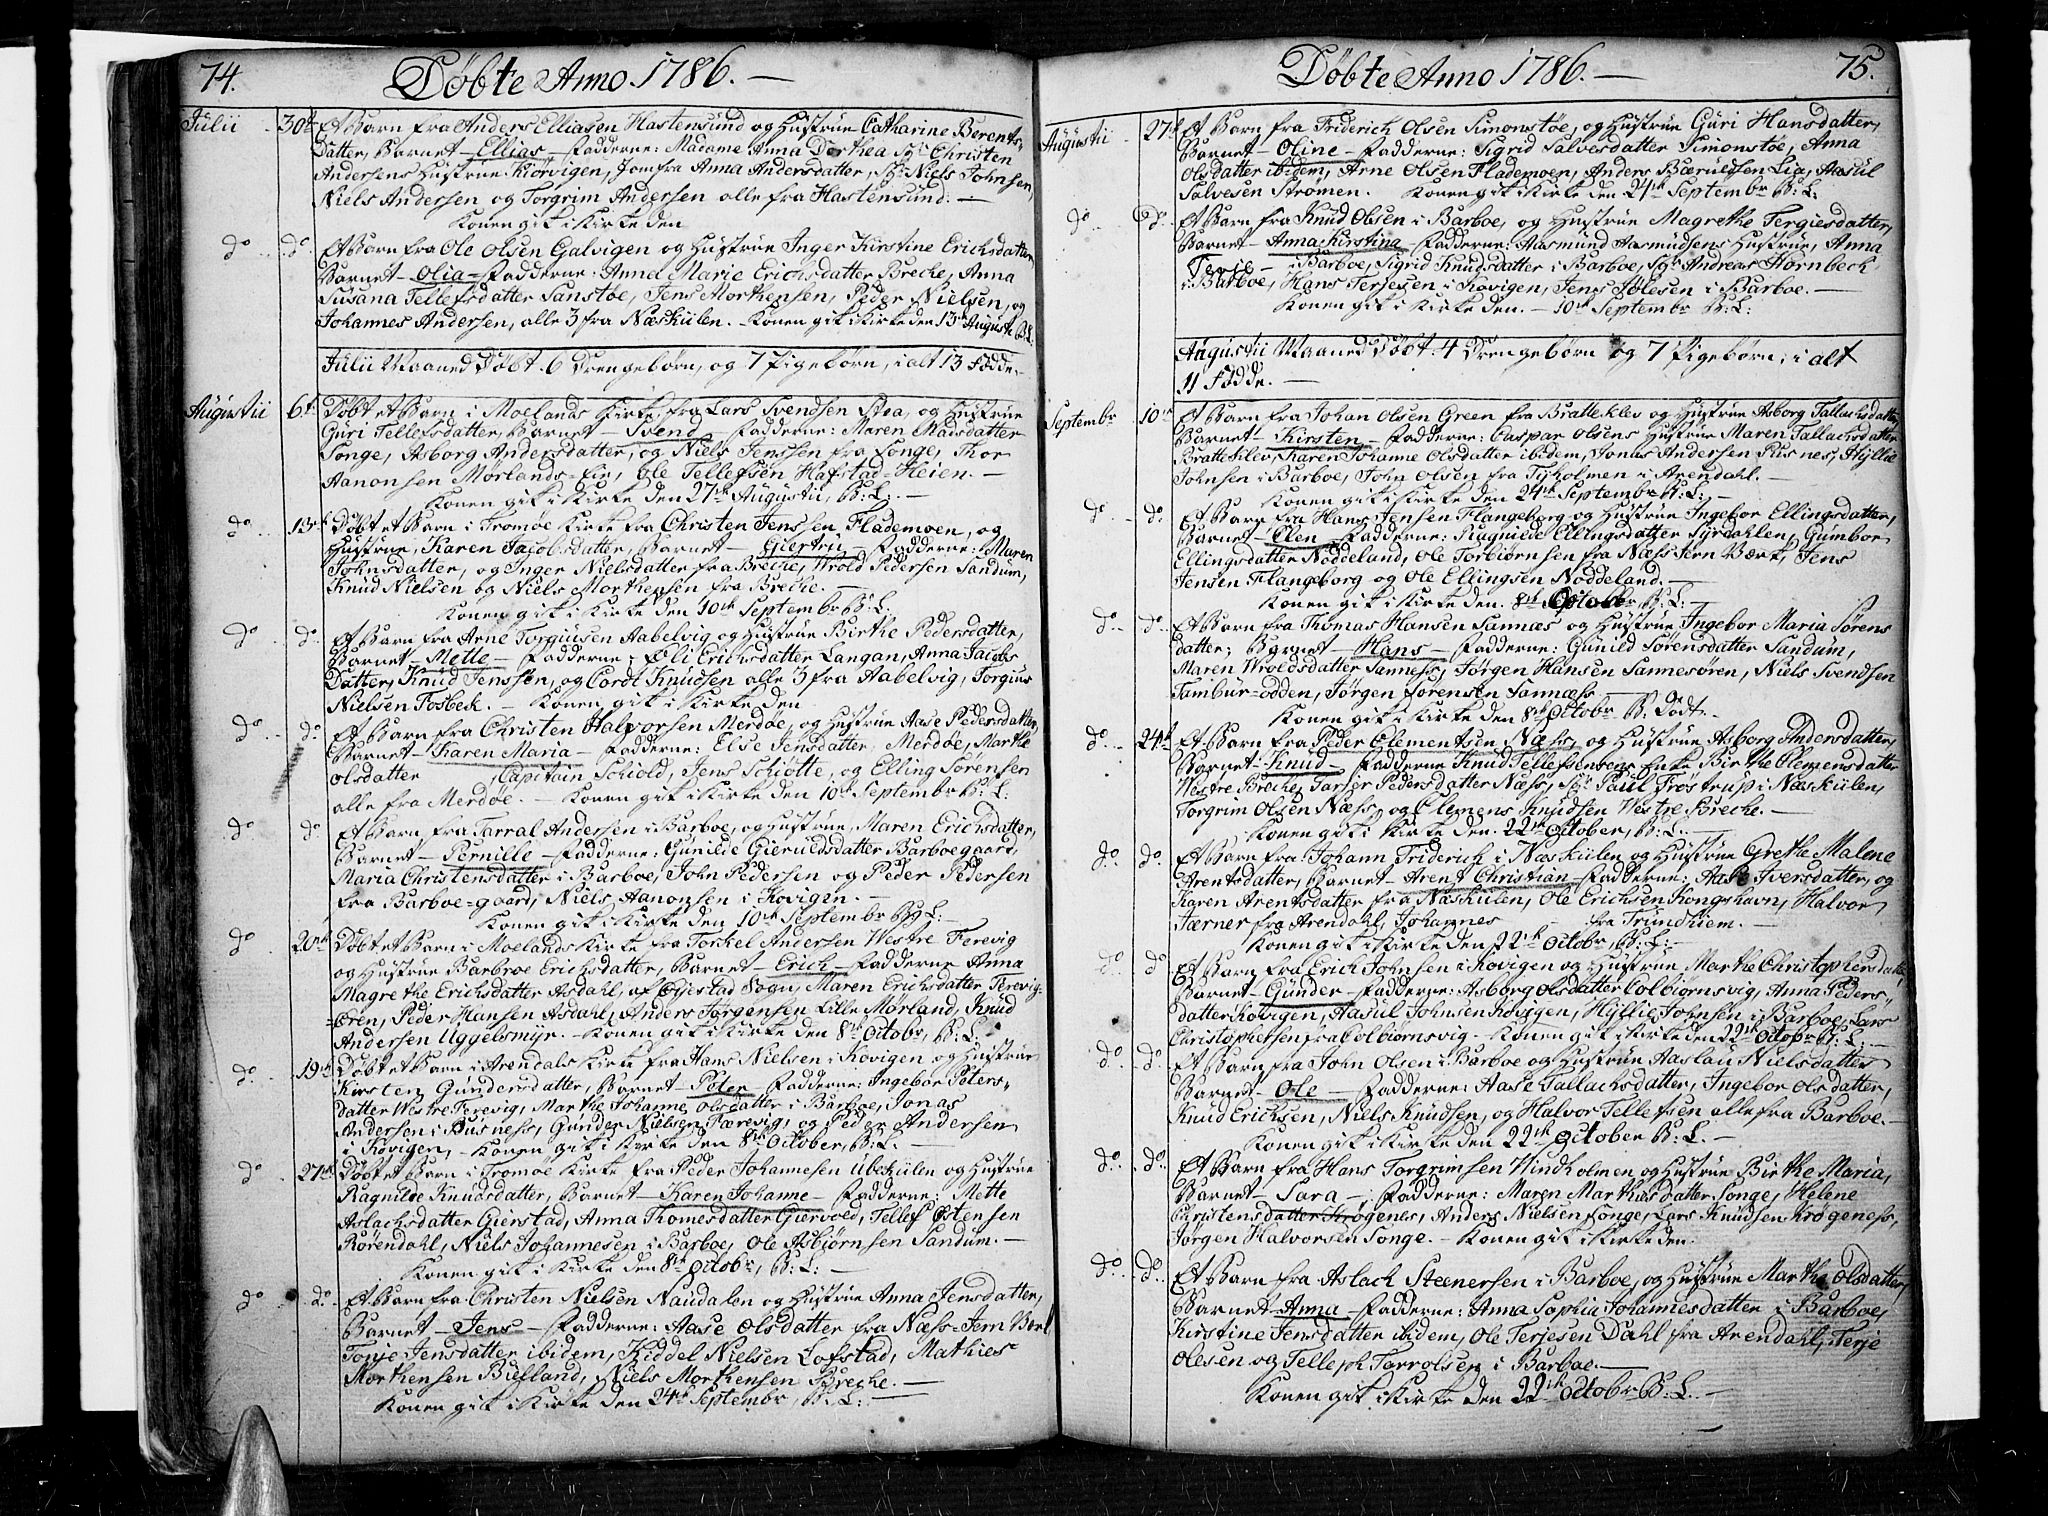 74.
Döbte Anno 1786. —
Julii 30te Et Barn fra Anders Elliasen Hastensund og Hustrue Catharine Berents-
Datter, Barnet — Ellias — Fadderne: Madame Anna Dorthea Sr. Christen
Andersens Hustrue Kiörvigen, Jomfru Anna Andersdatter, Sr. Niels Johnsen,
Niels Andersen og Torgrim Andersen alle fra Hastensund. —
Konen gik i Kirke den
do do Et Barn fra Ole Olsen Galvigen og Hustrue Inger Kirstine Erichsdatter,
Barnet — Olia — Fadderne: Anna Marie Erichsdatter Breche, Anna
Susana Tellefsdatter Sanstöe, Jens Morthensen, Peder Nielsen, og
Johannes Andersen, alle 3 fra Næskiilen. — Konen gik i Kirke den 13th Augusti B:L:
Julii Maaned Döbt 6 Drengebörn, og 7 Pigebörn, i alt 13 Födde. —
Augustii 6te Döbt et Barn i Moelands Kirke fra Lars Svendsen Stea, og Hustrue
Guri Tellefsdatter, Barnet — Svend — Fadderne: Maren Madsdatter
Songe, Asborg Andersdatter, og Niels Jenssen fra Songe, Thor
Aanonsen Mørlands-Eie, Ole Tellefsen Hafstad-Heien. —
Konen gik i Kirke den 27th Augustii, B:L: —
do 13de Döbt et Barn i Tromøe Kirke fra Christen Jenssen Flademoen, og
Hustrue, Karen Jacobsdatter, Barnet — Giertru — Fadderne: Maren
Johnsdatter, og Inger Nielsdatter fra Breche, Wrold Pedersen Sandum,
Knud Nielsen og Niels Morthensen fra Breche. —
Konen gik i Kirke den 10th Septembr B:L:
do do Et Barn fra Arne Torgiusen Aabelvig og Hustrue Birthe Pedersdatter,
Barnet — Mette — Fadderne: Oli Erichsdatter Langan, Anna Jacobs
Datter, Knud Jenssen, og Cordt Knudsen alle 3 fra Aabelvig, Torgius
Nielsen Fosbek. — Konen gik i Kirke den
do do Et Barn fra Christen Halvorsen Merdöe, og Hustrue Aase Pedersdatter,
Barnet — Karen Maria — Fadderne: Else Jensdatter Merdöe, Marthe
Olsdatter Capitain Schiold, Jens Schiötte, og Elling Sörensen
alle fra Merdöe. — Konen gik i Kirke den 10th Septembr B:L:
do do Et Barn fra Tarral Andersen i Barboe, og Hustrue, Maren Erichsdatter,
Barnet — Pernille — Fadderne: Gunilde Gieruldsdatter Barboegaard,
Maria Christensdatter i Barboe, John Pedersen og Peder Pedersen
fra Barboe-gaard, Niels Aanonsen i Kovigen. —
Konen gik i Kirke den 10th Septembr B:L: —
do 20de Döbt et Barn i Moelands Kirke fra Torkel Andersen Westre Ferevig
og Hustrue Barbroe Erichsdatter, Barnet — Erich — Fadderne Anna
Magrethe Erichsdatter Asdahl, af Öjestad Sogn, Maren Erichsdatter Ferevig-
Ören, Peder Hansen Asdahl, Anders Jörgensen Lille Mørland, Knud
Andersen Uggelsmyr. — Konen gik i Kirke den 8th Octobr, B:L:
do 19de Döbt et Barn i Arendals Kirke fra Hans Nielsen i Kovigen og Hustrue
Kirsten Gundersdatter, Barnet — Peter — Fadderne: Ingebor Peters-
datter Westre Ferevig, Marthe Johanne Olsdatter i Barboe, Jonas
Andersen i Pusness, Gunder Nielsen Færevig, og Peder Andersen
i Kovigen, — Konen gik i Kirke den 8th October, B:L: —
do 27de Döbt et Barn i Tromøe Kirke fra Peder Johannesen Ubekiilen og Hustrue
Ragnilde Knudsdatter, Barnet — Karen Johanne — Fadderne: Mette
Aslachsdatter Gierstad, Anna Thomesdatter Giervoed, Tellef Östensen
Rörendahl, Niels Johannesen i Barboe, Ole Asbiörnsen Sandum. —
Konen gik i Kirke den 8th Octobr, B:L: —
do do Et Barn fra Christen Nielsen Naudalen og Hustrue Anna Jensdatter,
Barnet — Jens — Fadderne: Aase Olsdatter fra Næss-Jern Verk
Tonje Jensdatter ibidem, Kiddel Nielsen Lofstad, Mathies
Morthensen Biefland, Niels Morthensen Breche. —
Konen gik i Kirke den 24th Septembr, B:L: —
75.
Döbte Anno 1786. —
Augustii 27de Et Barn fra Friderich Olsen Simonstøe, og Hustrue Guri Hansdatter,
Barnet — Oline — Fadderne: Sigrid Salvesdatter Simonstøe, Anna
Olsdatter ibidem, Arne Olsen Flademoen, Anders Bæruldsen Lia, Aasul
Salvesen Strømen. Konen gik i Kirke den 24th Septembr B:L:
do do Et Barn fra Knud Olsen i Barboe, og Hustrue Magrethe Tergiesdatter,
Barnet — Anna Kirstina — Fadderne: Aasmund Aasmudsens Hustrue, Anna
Terje — i Barboe, Sigrid Knudsdatter i Barboe, Sr. Andreas Hornbech
i Barboe, Hans Terjesen i Kovigen, Jens Jølesen i Barboe. —
Konen gik i Kirke den. — 10th Septembr B:L:
Augustii Maaned Döbt 4 Drengebörn og 7 Pigebörn, i alt
11 Födde. —
Septembr 10de Et Barn fra Johan Olsen Green fra Bratteklev og Hustrue Asborg Tallachsdatter
Barnet — Kirsten — Fadderne: Caspar Olsens Hustrue Maren Tallachsdatter
Bratteklev, Karen Johanne Olsdatter ibidem, Jonas Andersen Pusnes, Hyllie
Johnsen i Barboe, John Olsen fra Tyholmen i Arendahl. —
Konen gik i Kirke den 24th Septembr B:L: —
do do Et Barn fra Hans Jensen Flangeborg og Hustrue Ingebor Ellingsdatter,
Barnet — Elen — Fadderne: Ragnilde Ellingsdatter Syrdahlen, Gumbor
Ellingsdatter Noddeland, Ole Torbiörnsen fra Næss Jern Værk, Jens
Jensen Flangeborg og Ole Ellingsen Noddeland. —
Konen gik i Kirke den. 8th October, B:L: —
do do Et Barn fra Thomas Hansen Sannæs og Hustrue Ingebor Maria Sörens
datter; Barnet — Hans — Fadderne: Gunild Sörensdatter Sandum,
Maren Wroldsdatter Sanness, Jörgen Hansen Sannesören, Niels Svendsen
Tambur-odden, Jörgen Sørensen Sannæss
Konen gik i Kirke den 8th Octobr B: Dödt. —
do 24de Et Barn fra Peder Clementsen Næss, og Hustrue Asborg Andersdatter,
Barnet — Knud — Fadderne Knud Tellefsens Enke Birthe Clemensdatter
Westre Breche, Tarjer Pedersdatter Næss, Sr. Paul Fröstrup i Næskiilen,
Torgrim Olsen Næss, og Clemens Knudsen Westre Breche. —
Konen gik i Kirke den. 22th October, B:L: —
do do Et Barn fra Johann Friderich i Næskiilen og Hustrue Grethe Malene
Arentsdatter, Barnet — Arent Christian — Fadderne: Aase Iversdatter, og
Karen Arentsdatter fra Næskiilen, Ole Erichsen Kongshavn, Halvor
Færner fra Arendahl, Johannes fra Trundhiem. —
Konen gik i Kirke den 22th Octobr, B:L: —
do do Et Barn fra Erich Johnsen i Kovigen og Hustrue Marthe Christophersdatter,
Barnet — Gunder — Fadderne: Asborg Olsdatter Colbiørnsvig, Anna Peders-
datter Kovigen, Aasul Johnsen Kovigen, Hyllie Johnsen i Barboe, Lars
Christophersen fra Colbiørnsvig — Konen gik i Kirke den 22th Octobr B:L: —
do do Et Barn fra John Olsen i Barboe og Hustrue Aaslau Nielsdatter
Barnet — Ole — Fadderne: Aase Tallachsdatter, Ingebor Olsdatter,
Knud Erichsen, Niels Knudsen, og Halvor Tellefsen alle fra Barboe. —
Konen gik i Kirke den 22th October B:L: —
do do Et Barn fra Hans Torgrimsen Windholmen og Hustrue Birthe Maria,
Barnet — Sara — Fadderne: Maren Marthasdatter Songe, Helene
Christensdatter Krögenes, Anders Nielsen Songe, Lars Knudsen Krögeness,
Jörgen Halvorsen Songe. — Konen gik i Kirke den.
do do Et Barn fra Aslach Steenersen i Barboe, og Hustrue Marthe Olsdatter,
Barnet — Anna — Fadderne: Anna Sophia Johannesdatter i Barboe,
Kirstine Jensdatter ibidem, Ole Terjesen Dahl fra Arendahl, Terje
Olesen og Telleph Tarrolsen i Barboe. —
Konen gik i Kirke den 22th Octobr B:L. —